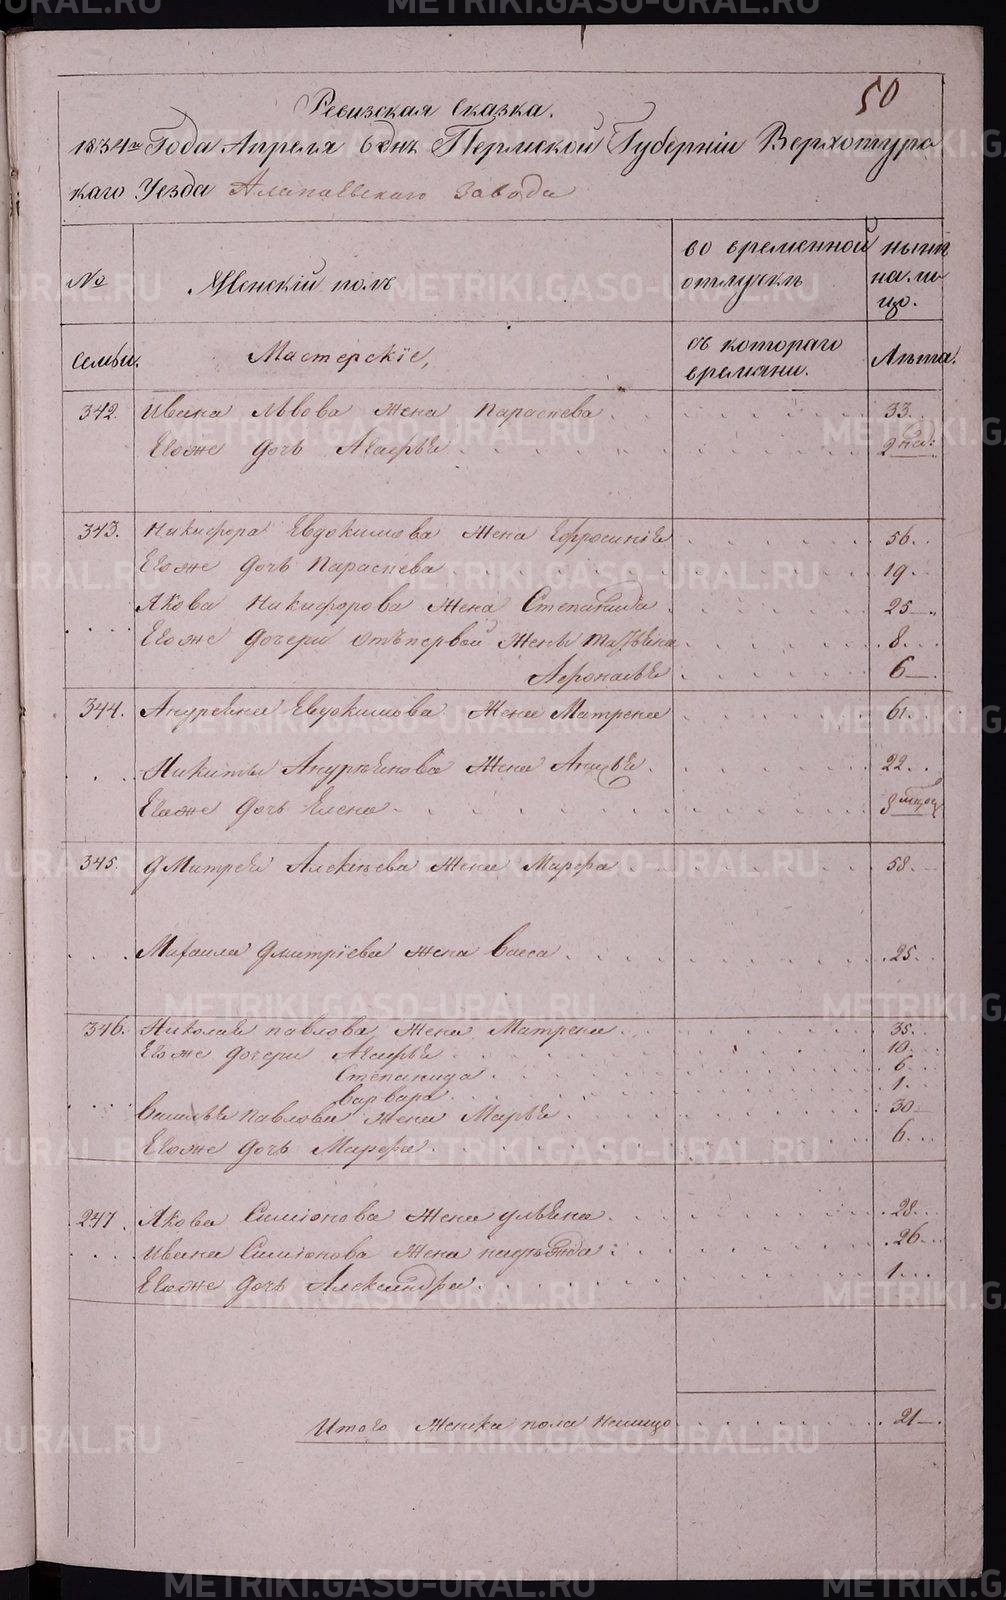 50
Ревизская Сказка.
1834го Года Апреля 6 днъ Пермской Губернiи Верхотурс
каго Уезда Алапаевскаго завода
№ Женскiй полъ во временной отлускъ ныне на ли цо.
семьи. Мастерскiе, съ котораго времяни. Лѣта.
342. Ивана Львова жена Парасковева 33.
Егоже дочь Агафья 2 не:
343. Никифора Евдокимова жена Ефросинiя 56.
Егоже дочь Парасковева 19.
Якова Никифорова жена Степанида 25
Егоже дочери отъ первой жены Татьяна 8.
Афонасья 6
344. Андреяна Евдокимова жена Матрена 61.
Никиты Андреянова жена 22.
Егоже дочь Елена 3
345. Дмитрея Алексѣева жена Марфа 58.
Михаила Дмитрiева жена Васса 25.
346. Николая Павлова жена Матрена 35.
Егоже дочери Агафья 10.
Степанида 6
Варвара 1.
Василья Павлова жена Марья 30
Егоже дочь Марфа 6.
247. Якова Симiонова жена Ульяна 28.
Ивана Симiонова жена 26
Егоже дочь Александра 1
Итого женска пола налицо 21
METRIKI.GASO-URAL.RU